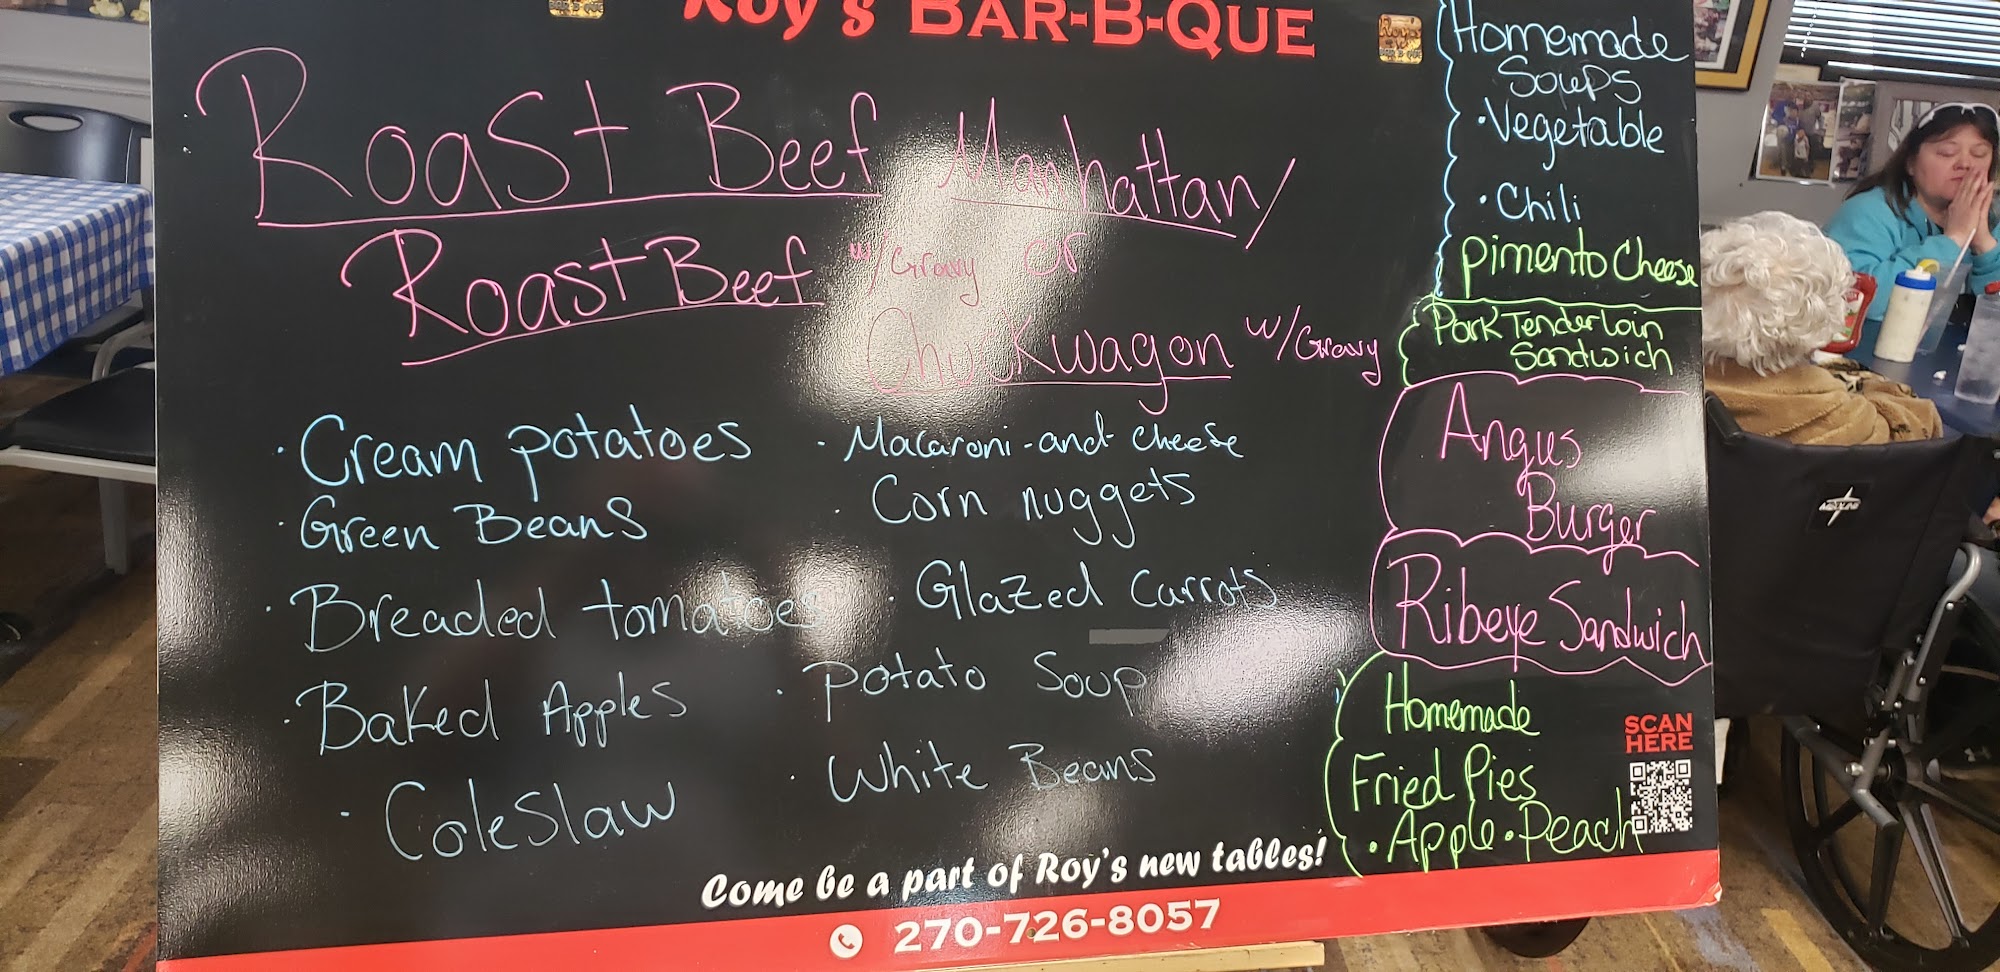 Roy's BAR-B-QUE
Roast Beef Manhattan/
Roast Beef w/ Gravy or
Chuckwagon w/ Gravy
· Cream potatoes
· Green Beans
· Breaded tomatoes
· Baked Apples
· Coleslaw
· Macaroni-and-cheese
· Corn nuggets
· Glazed carrots
· Potato Soup
· White Beans
Homemade
Soups
· Vegetable
· Chili
Pimento Cheese
Pork Tenderloin
Sandwich
Angus
Burger
Ribeye Sandwich
Homemade
Fried Pies
· Apple · Peach
SCAN
HERE
Come be a part of Roy's new tables!
270-726-8057